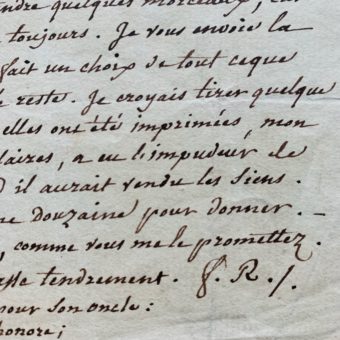 endre quelques morceaux, car
toujours. Je vous envoie la
fait un choix de tout ceque
reste. Je croyais tirer quelque
elles ont été imprimées, mon
laires, a eu l'impudeur de
il aurait vendu les siens.
ne douzaine pour donner. —
, comme vous me le promettez.
asse tendrement. f. R. /.
pour son oncle:
honore;